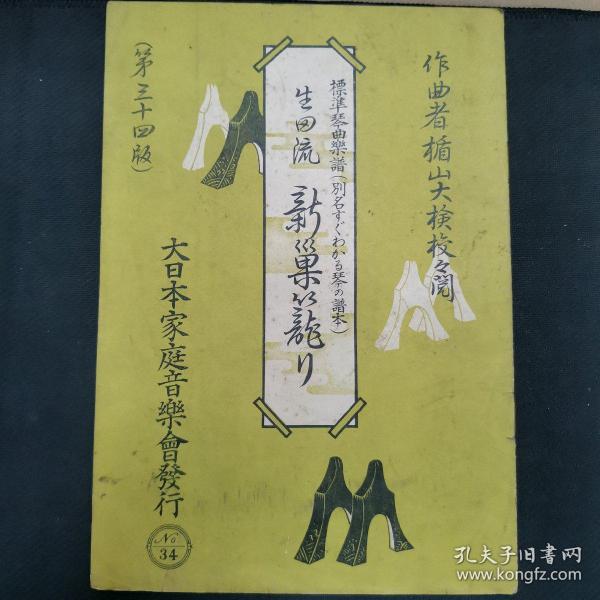 作曲者楯山大検校々閲
標準琴曲樂譜(別名すぐわかる琴の譜本)
生田流 新巣籠り
(第三十四版)
大日本家庭音樂會發行
No
34
孔夫子旧书网
www.kongfz.com